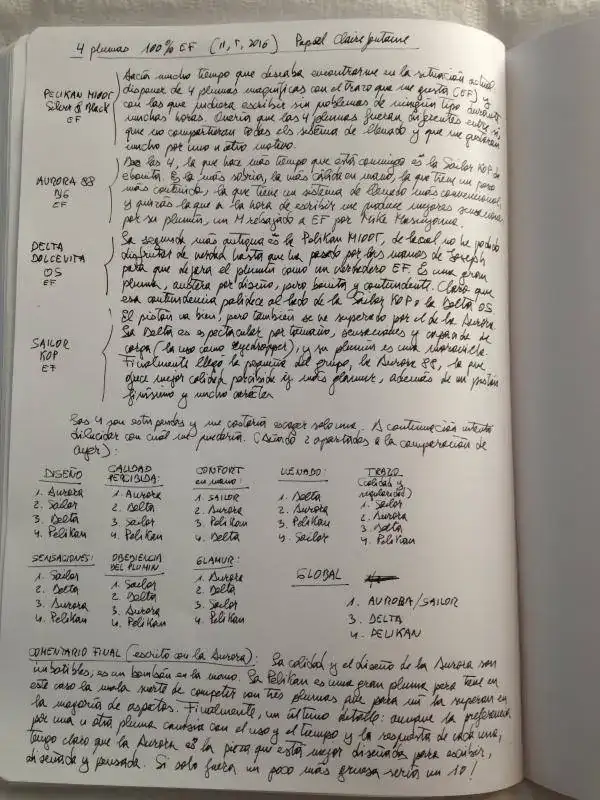 4 plumas 100% EF (11, 5, 2016) Papel Clairefontaine
PELIKAN M1007
Silver & Black
EF
Hacía mucho tiempo que deseaba encontrarme en la situación actual
disponer de 4 plumas magníficas con el trazo que me gusta (EF) y
con las que pudiera escribir sin problemas de ningún tipo durante
muchas horas. Quería que las 4 plumas fueran diferentes entre sí
que no compartieran todas ellas sistema de llenado y que me gustaran
mucho por uno u otro motivo.
AURORA 88
EF
De las 4, la que hace más tiempo que está conmigo es la Sailor KOP de
ebonita. Es la más sobria, la más cálida en mano, la que tiene un paso
más contenido, la que tiene un sistema de llenado más convencional
y quizás la que a la hora de escribir me produce mejores sensaciones
por su plumín, un M rebajado a EF por Mike Masuyama.
DELTA
DOLCEVITA
OS
EF
La segunda más antigua es la Pelikan M1007, de la cual no he podido
disfrutar de verdad hasta que ha pasado por las manos de Joseph
para que dejara el plumín como un verdadero EF. Es una gran
pluma, austera por diseño, pero bonita y contundente. Claro que
esa contundencia palidece al lado de la Sailor KOP o la Delta OS
El pistón va bien, pero también se ve superado por el de la Aurora
SAILOR
KOP
EF
La Delta es espectacular por tamaño, sensaciones y capacidad de
carga (la uso como eyedropper), y su plumín es una maravilla.
Finalmente llegó la pequeña del grupo, la Aurora 88, la que
ofrece mejor calidad percibida y más glamur, además de un pistón
finísimo y mucho carácter
Las 4 son estupendas y me costaría escoger solo una. A continuación intento
dilucidar con cuál me quedaría. (Añado 2 apartados a la comparación de
ayer):
DISEÑO
1. Aurora
2. Sailor
3. Delta
4. Pelikan
CALIDAD
PERCIBIDA:
1. Aurora
2. Delta
3. Sailor
4. Pelikan
CONFORT
en mano:
1. SAILOR
2. Aurora
3. Pelikan
4. Delta
LLENADO:
1. Delta
2. Aurora
3. Pelikan
4. Sailor
TRAZO
(calidad y
regularidad)
1. Sailor
2. Aurora
3. Delta
4. Pelikan
SENSACIONES:
1. Sailor
2. Delta
3. Aurora
4. Pelikan
OBEDIENCIA
DEL PLUMIN
1. Sailor
2. Delta
3. Aurora
4. Pelikan
GLAMUR:
1. Aurora
2. Delta
3. Sailor
4. Pelikan
GLOBAL
1. AURORA/SAILOR
3. DELTA
4. PELIKAN
COMENTARIO FINAL (escrito con la Aurora): La calidad y el diseño de la Aurora son
imbatibles, es un bombón en la mano. La Pelikan es una gran pluma pero tiene en
este caso la mala suerte de competir con tres plumas que para mí la superan en
la mayoría de aspectos. Finalmente, un último detalle: aunque la preferencia
por una u otra pluma cambia con el uso y el tiempo y la respuesta de cada una,
tengo claro que la Aurora es la pieza que está mejor diseñada para escribir,
diseñada y pensada. Si solo fuera un poco más gruesa sería un 10!